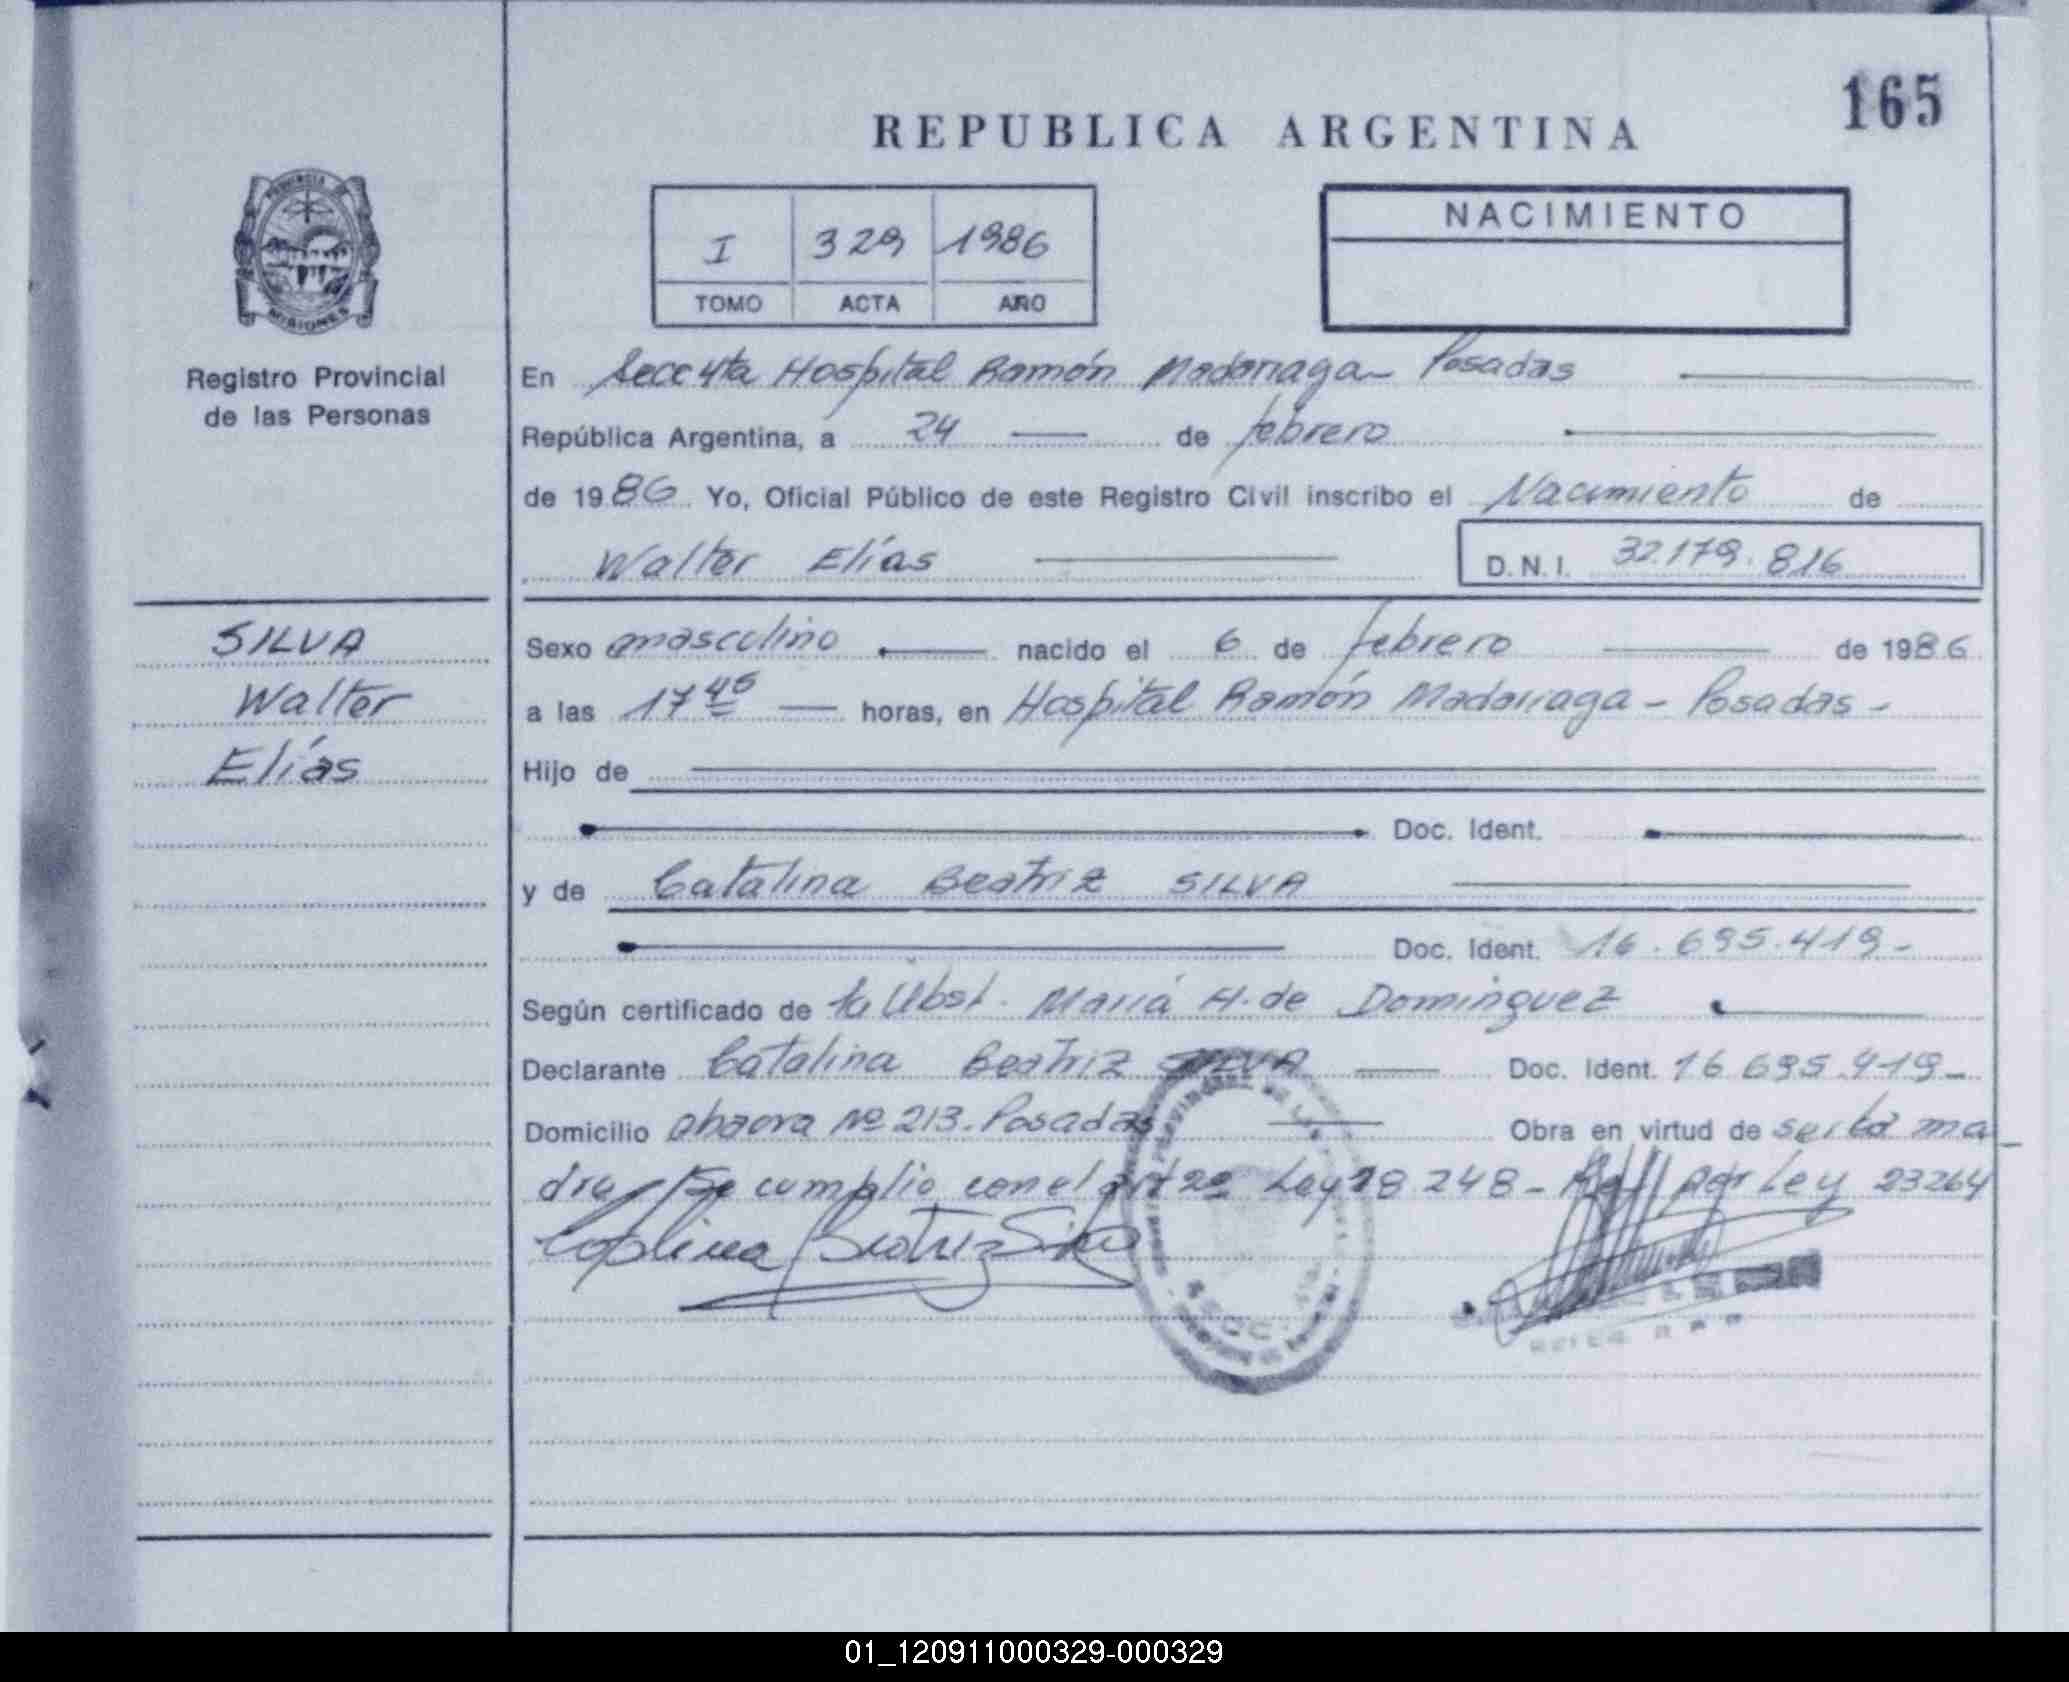 165
REPUBLICA ARGENTINA
PROVINCIA DE
MISIONES
Registro Provincial
de las Personas
I 329 1986
TOMO ACTA AÑO
NACIMIENTO
En Secc 4ta Hospital Ramón Madariaga - Posadas
República Argentina, a 24 de febrero
de 1986 Yo, Oficial Público de este Registro Civil inscribo el Nacimiento de
Walter Elías D.N.I. 32.179.816
SILVA
Walter
Elías
Sexo masculino nacido el 6 de febrero de 1986
a las 17 45 horas, en Hospital Ramón Madariaga - Posadas -
Hijo de
Doc. Ident.
y de Catalina Beatriz SILVA
Doc. Ident. 16.695.419-
Según certificado de la Obst. María H. de Dominguez
Declarante Catalina Beatriz SILVA Doc. Ident. 16 695.419-
Domicilio Nº 213. Posadas Obra en virtud de ser la ma
dre Se cumplio con el art 2º Ley 18 248 - por Ley 23264
Catalina Beatriz Silva
01_120911000329-000329